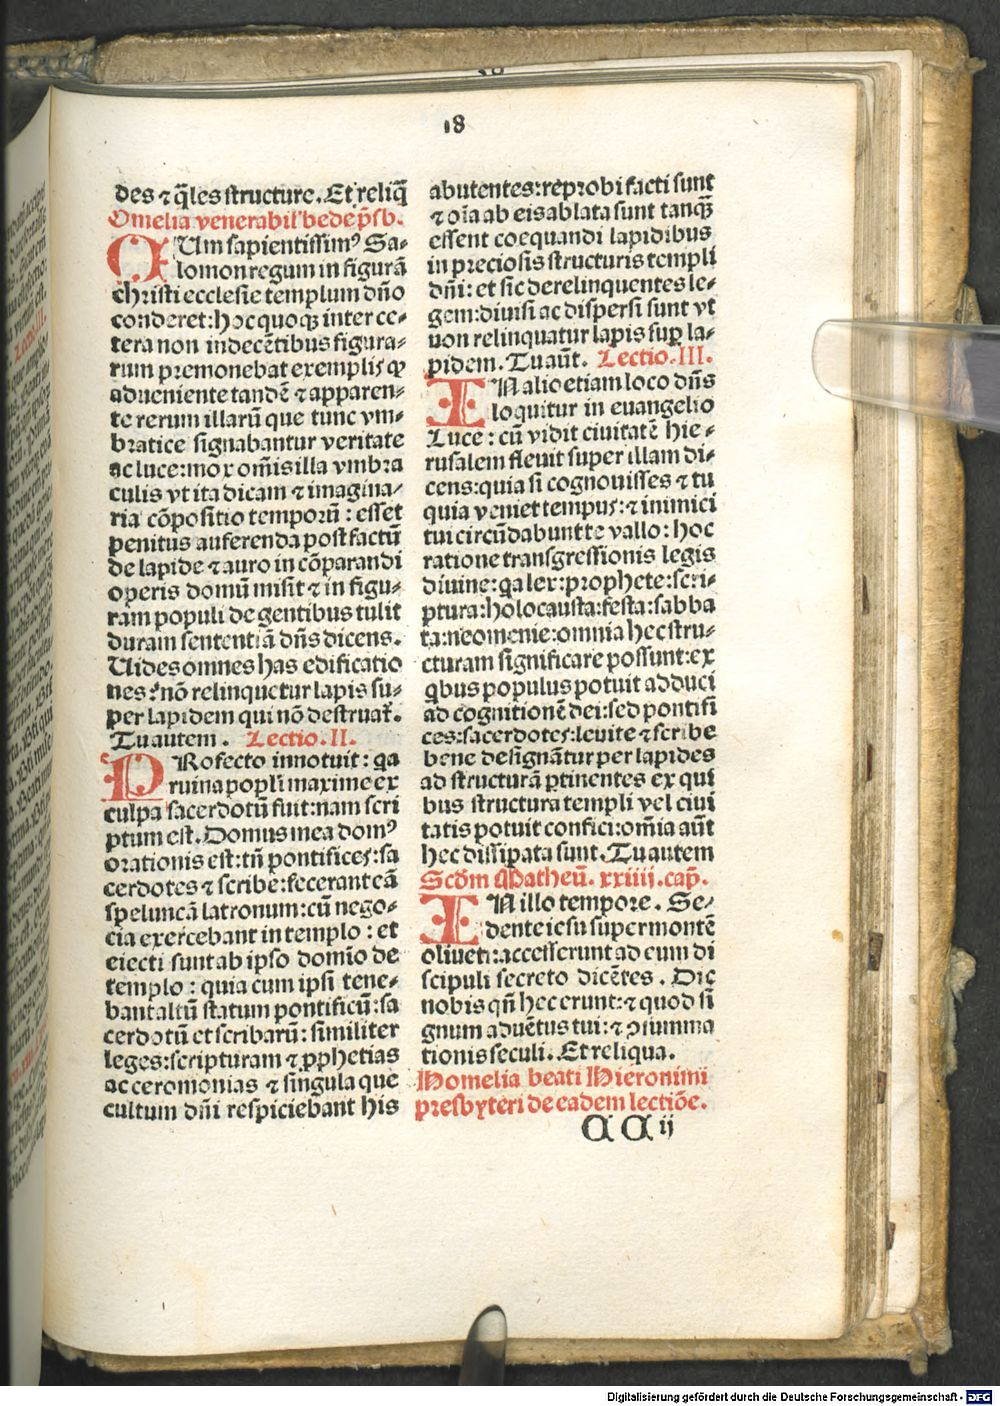 18
des ⁊ q̃les structure. Et reliq̃
Omelia venerabil' bede p̃sb.
CUm sapientissimꝰ Sa-
lomon regum in figurã
christi ecclesie templum dño
conderet: hoc quoqꝫ inter ce-
tera non indecẽtibus figura-
rum premonebat exemplis ꝙ
adueniente tandẽ ⁊ apparen-
te rerum illarũ que tunc vm-
bratice signabantur veritate
ac luce: mox om̃is illa vmbra
culis vt ita dicam ⁊ imagina-
ria cõpositio temporũ: esset
penitus auferenda post factũ
de lapide ⁊ auro in cõparandi
operis domũ misit ⁊ in figu-
ram populi de gentibus tulit
duram sententiã dñs dicens.
Uides omnes has edificatio
nes: nõ relinquetur lapis su-
per lapidem qui nõ destruat̃.
Tu autem. Lectio. II.
PRofecto innotuit: qa
ruina popl̃i maxime ex
culpa sacerdotũ fuit: nam scri
ptum est. Domus mea domꝰ
orationis est: tñ pontifices: sa
cerdotes ⁊ scribe: fecerant eã
speluncã latronum: cũ nego-
cia exercebant in templo: et
eiecti sunt ab ipso domĩo de
templo: quia cum ipsi tene-
bant altũ statum pontificũ: sa
cerdotũ et scribarũ: similiter
leges: scripturam ⁊ ꝓphetias
ac ceromonias ⁊ singula que
cultum dñi respiciebant his
abutentes: reprobi facti sunt
⁊ oĩa ab eis ablata sunt tanqꝫ
essent coequandi lapidibus
in preciosis structuris templi
dñi: et sic derelinquentes le-
gem: diuisi ac dispersi sunt vt
non relinquatur lapis suꝑ la-
pidem. Tu aũt. Lectio. III.
IN alio etiam loco dñs
loquitur in euangelio
Luce: cũ vidit ciuitatẽ hie-
rusalem fleuit super illam di-
cens: quia si cognouisses ⁊ tu
quia veniet tempus: ⁊ inimici
tui circũdabunt te vallo: hoc
ratione transgressionis legis
diuine: qa lex: prophete: scri-
ptura: holocausta: festa: sabba
ta: neomenie: omnia hec stru-
cturam significare possunt: ex
qbus populus potuit adduci
ad cognitionẽ dei: sed pontifi
ces: sacerdotes: leuite ⁊ scribe
bene designãtur per lapides
ad structurã ꝑtinentes ex qui
bus structura templi vel ciui
tatis potuit confici: om̃ia aũt
hec dissipata sunt. Tu autem
Scdm Matheũ. xxiiij. cap̃.
IN illo tempore. Se-
dente iesu super montẽ
oliueti: accesserunt ad eum di
scipuli secreto dicẽtes. Dic
nobis qñ hec erunt: ⁊ quod si
gnum aduẽtus tui: ⁊ ꝯsumma
tionis seculi. Et reliqua.
Homelia beati Hieronimi
presbyteri de eadem lectiõe.
AA ij
Digitalisierung gefördert durch die Deutsche Forschungsgemeinschaft - DFG